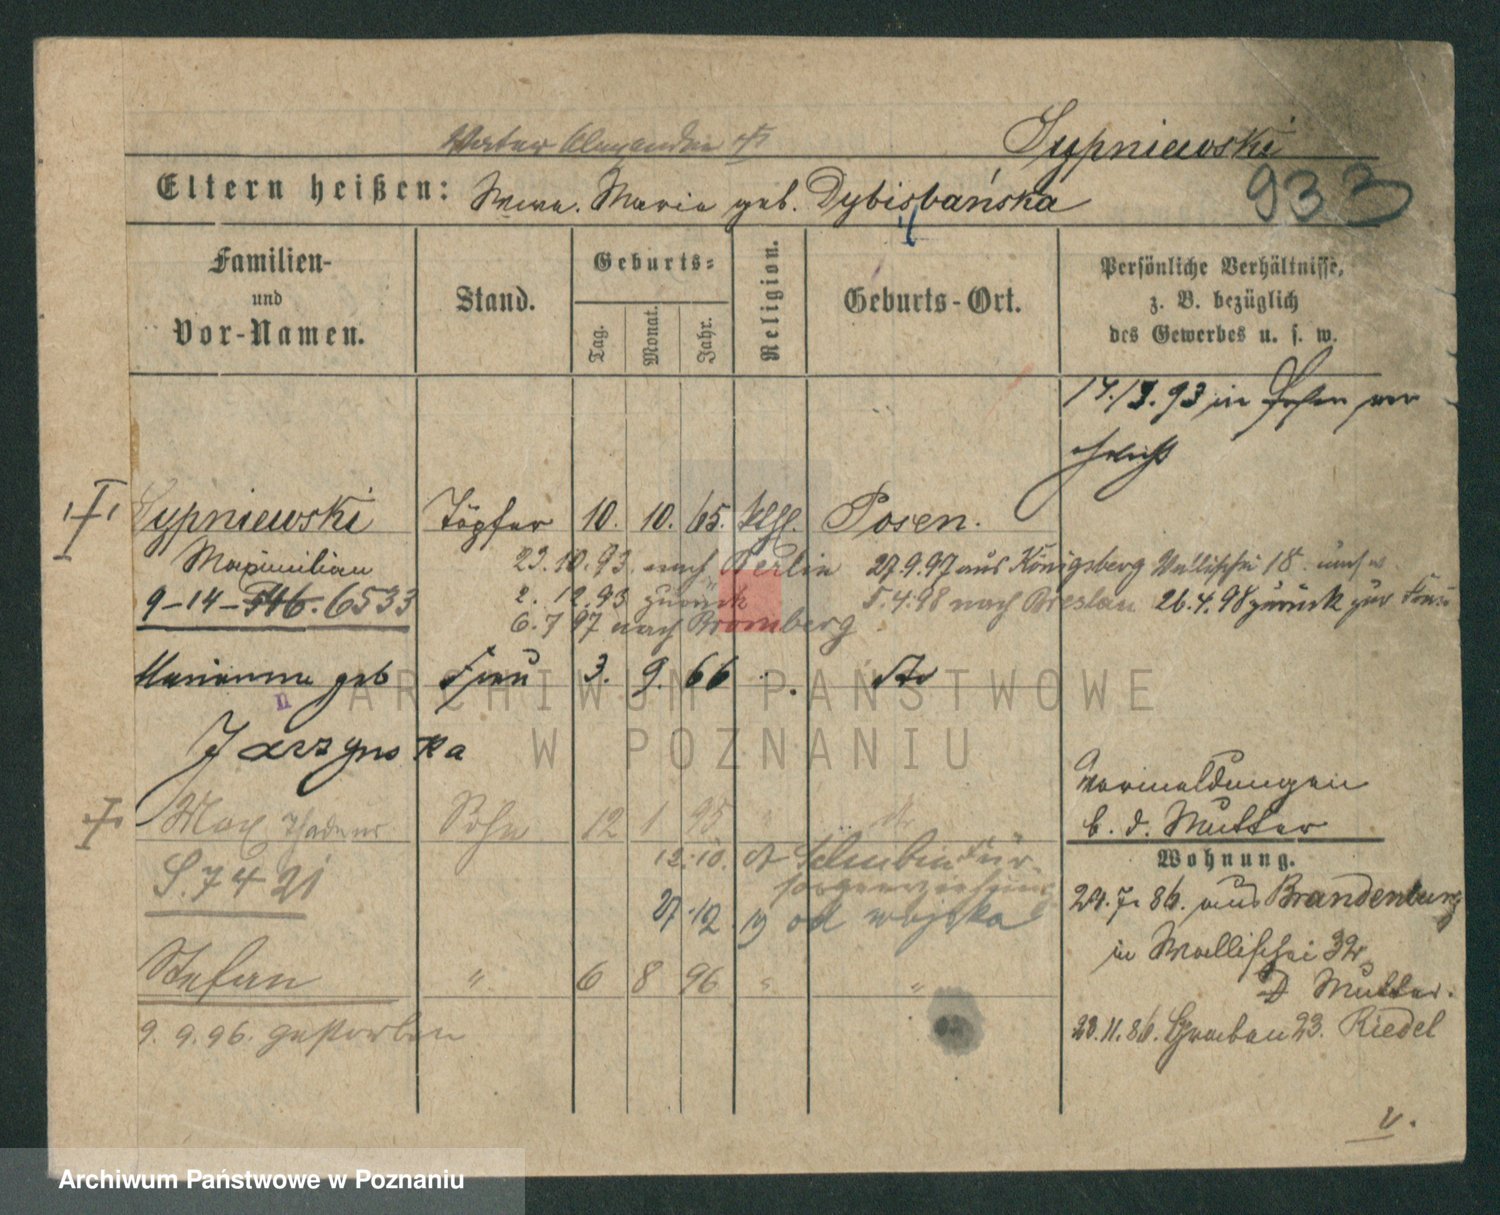 Vater Alexander
Sypniewski
Eltern heißen: Wwe. Maria geb. Dybisbańska
933
Familien-
und
Vor-Namen.
Stand.
Geburts-
Tag.
Monat.
Jahr.
Religion.
Geburts-Ort.
Persönliche Verhältnisse,
z. B. bezüglich
des Gewerbes u. s. w.
93 in Posen ver
ehelicht
Sypniewski Töpfer 10. 10. 65. kthl. Posen.
Maximilian
9-14- 6533
23.10.93. nach Berlin
2. 12.93 zurück
6. 7 97 nach Bromberg
27.9.97 aus Königsberg Wallischei 18.
5.4.98 nach Breslau 26.4.98 zurück zur Frau
Marianna geb Frau 3. 9. 66 dto
n
Jarzynska
Max Thadeus Sohn 12 1 95 " do
S. 7421
12.10. Schubin Für
sorgeerziehung
27.12 19 od wojska
Stefan " 6 8 96 " "
9. 9. 96. gestorben
Vormeldungen
b. d. Mutter
Wohnung.
24. 7. 86. aus Brandenburg
in Wallischei
Mutter.
23.11.86. Graben 23. Riedel
v.
ARCHIWUM PAŃSTWOWE
W POZNANIU
Archiwum Państwowe w Poznaniu